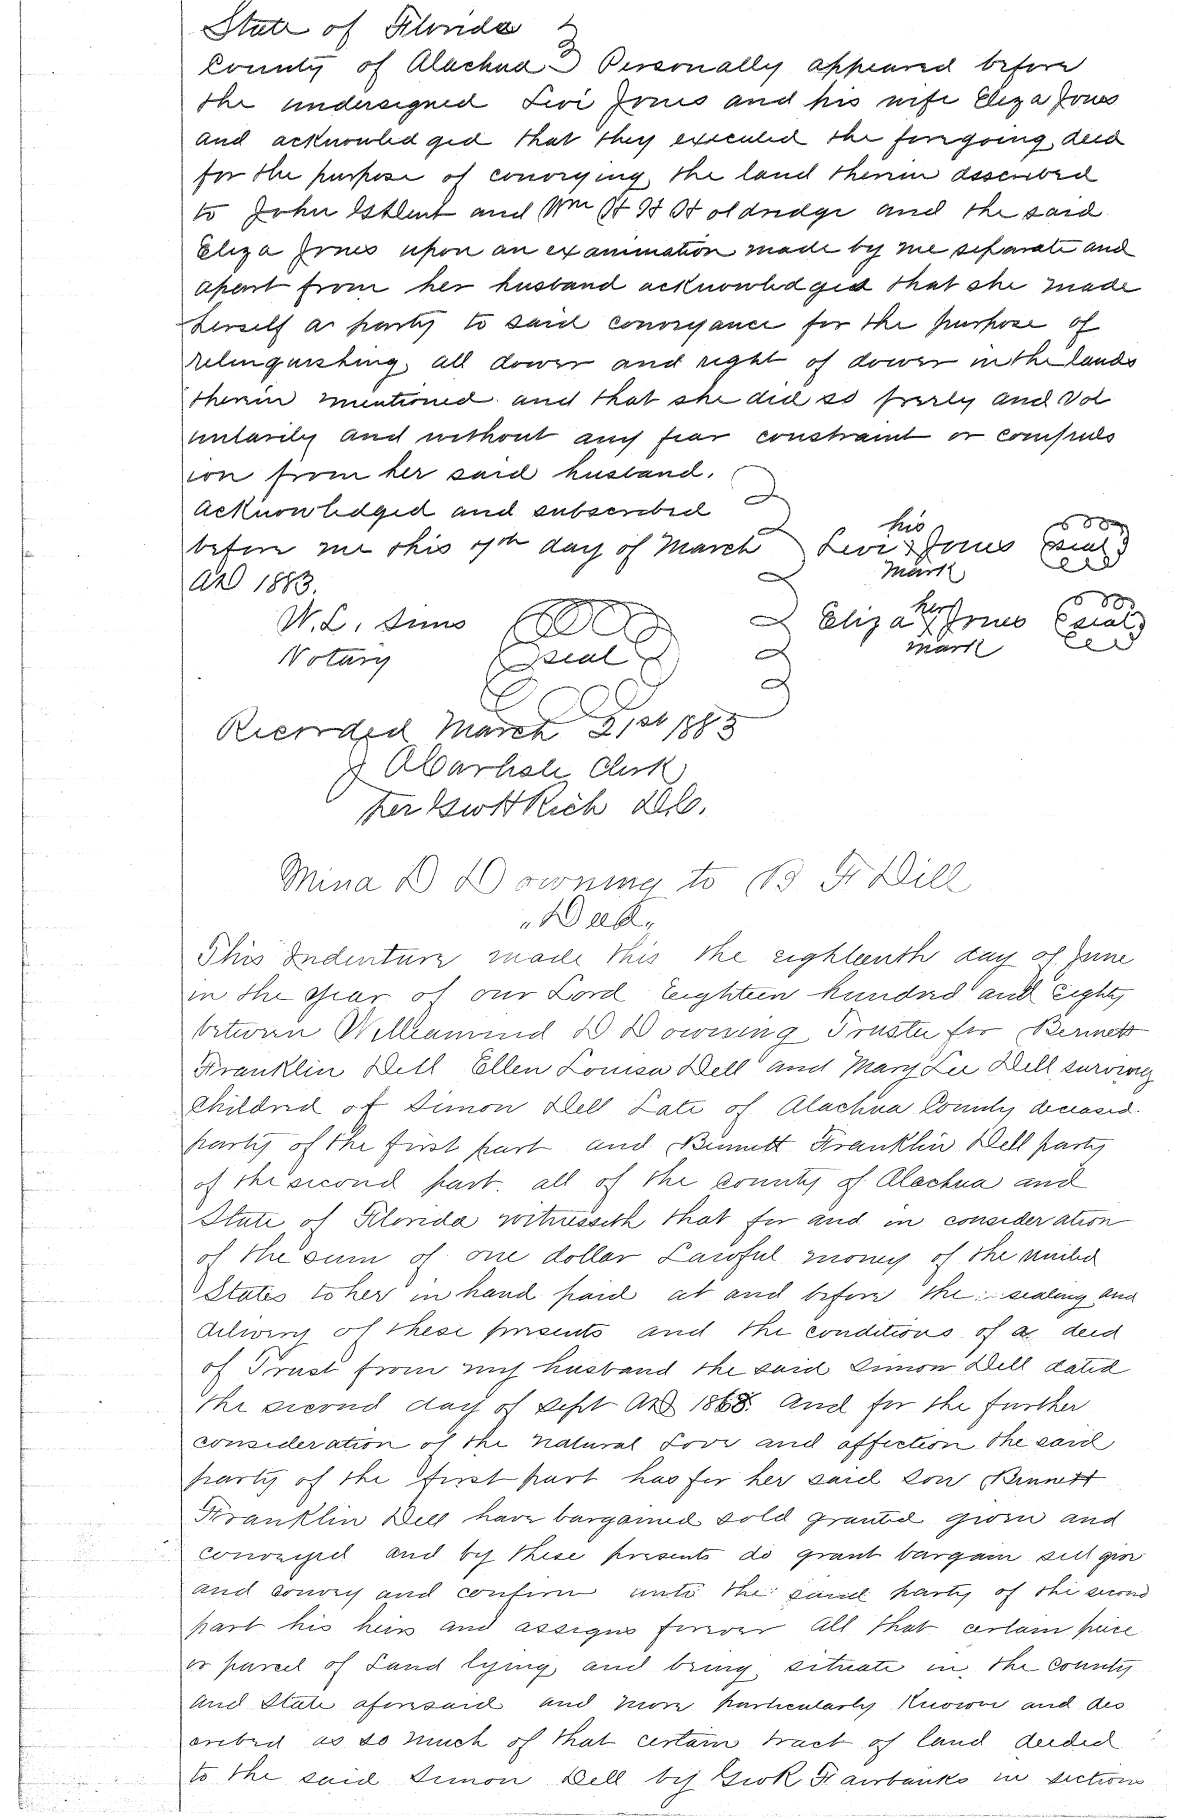 State of Florida
County of Alachua Personally appeared before
the undersigned Levi Jones and his wife Eliza Jones
and acknowledged that they executed the foregoing deed
for the purpose of conveying the land therein described
to John and Wm H H Holdridge and the said
Eliza Jones upon an examination made by me separate and
apart from her husband acknowledged that she made
herself a party to said conveyance for the purpose of
relinquishing all dower and right of dower in the lands
therein mentioned and that she did so freely and vol
untarily and without any fear constraint or compuls
ion from her said husband.
Acknowledged and subscribed
before me this 7th day of March
AD 1883.
his
Levi x Jones seal
mark
her
Eliza x Jones seal
mark
W. L. Sims
Notary seal
Recorded March 21st 1883
J A Carlisle Clerk
per Geo H Rich D.C.
Mina D Downing to B F Dill
"Deed"
This Indenture made this the eighteenth day of June
in the year of our Lord Eighteen hundred and eighty
between D Downing Trustee for Bennett
Franklin Dell Ellen Louisa Dell and Mary Lee Dell surving
Childred of Simon Dell Late of Alachua County deceased.
party of the first part and Bennett Franklin Dell party
of the second part. all of the county of Alachua and
State of Florida witnesseth that for and in consideration
of the sum of one dollar Lawful money of the united
States to her in hand paid at and before the sealing and
delivery of these presents and the conditions of a deed
of Trust from my husband the said Simon Dell dated
the second day of Sept AD 1868. And for the further
consideration of the natural Love and affection the said
party of the first part has for her said Son Bennett
Franklin Dell have bargained sold granted given and
conveyed and by these presents do grant bargain sell give
and convey and confirm unto the said party of the second
part his heirs and assigns forever all that certain piece
or parcel of Land lying and being situate in the county
and State aforesaid and more particularly Known and des
cribed as so much of that certain tract of land deeded
to the said Simon Dell by Geo R Fairbanks in sections